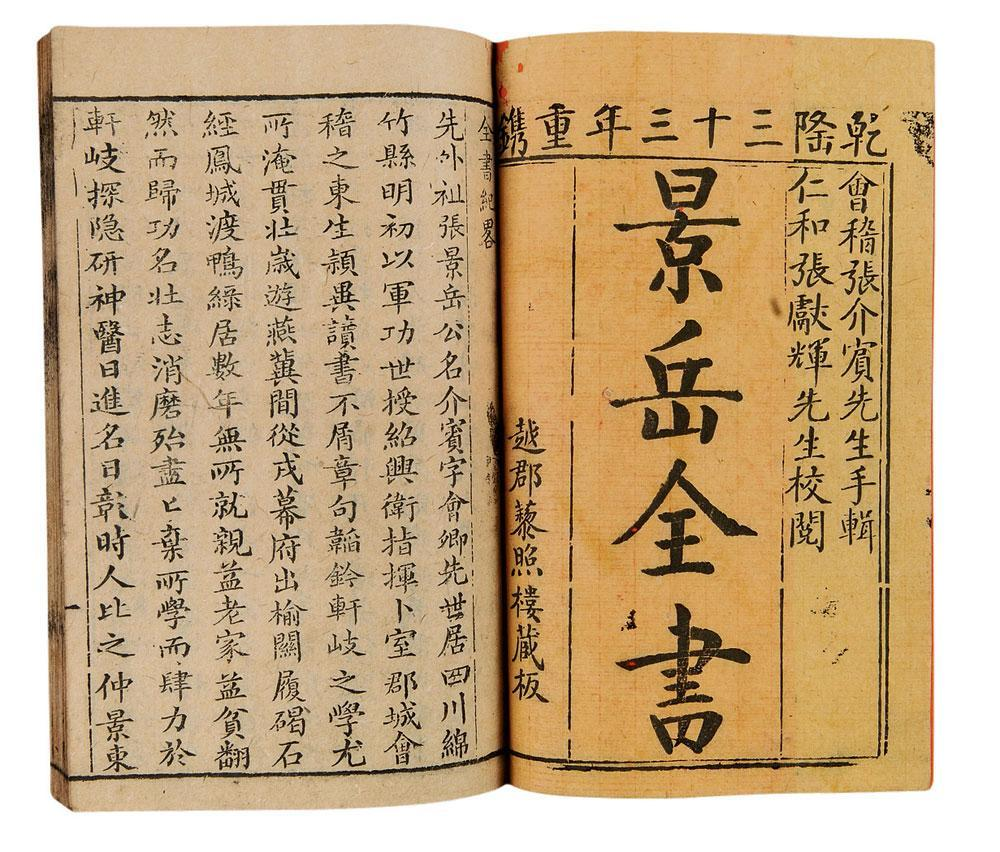 乾隆三十三年重鐫
會稽張介賓先生手輯
仁和張獻輝先生校閱
景岳全書
越郡藜照樓藏板
全書紀畧
先外祖張景岳公名介賓字會卿先世居四川綿
竹縣明初以軍功世授紹興衛指揮卜室郡城會
稽之東生頴異讀書不屑章句韜鈐軒岐之學尤
所淹貫壯歲遊燕冀間從戎幕府出榆關履碣石
經鳳城渡鴨綠居數年無所就親益老家益貧翻
然而歸功名壯志消磨殆盡㠯棄所學而肆力於
軒岐探隐研神醫日進名日彰時人比之仲景東
一